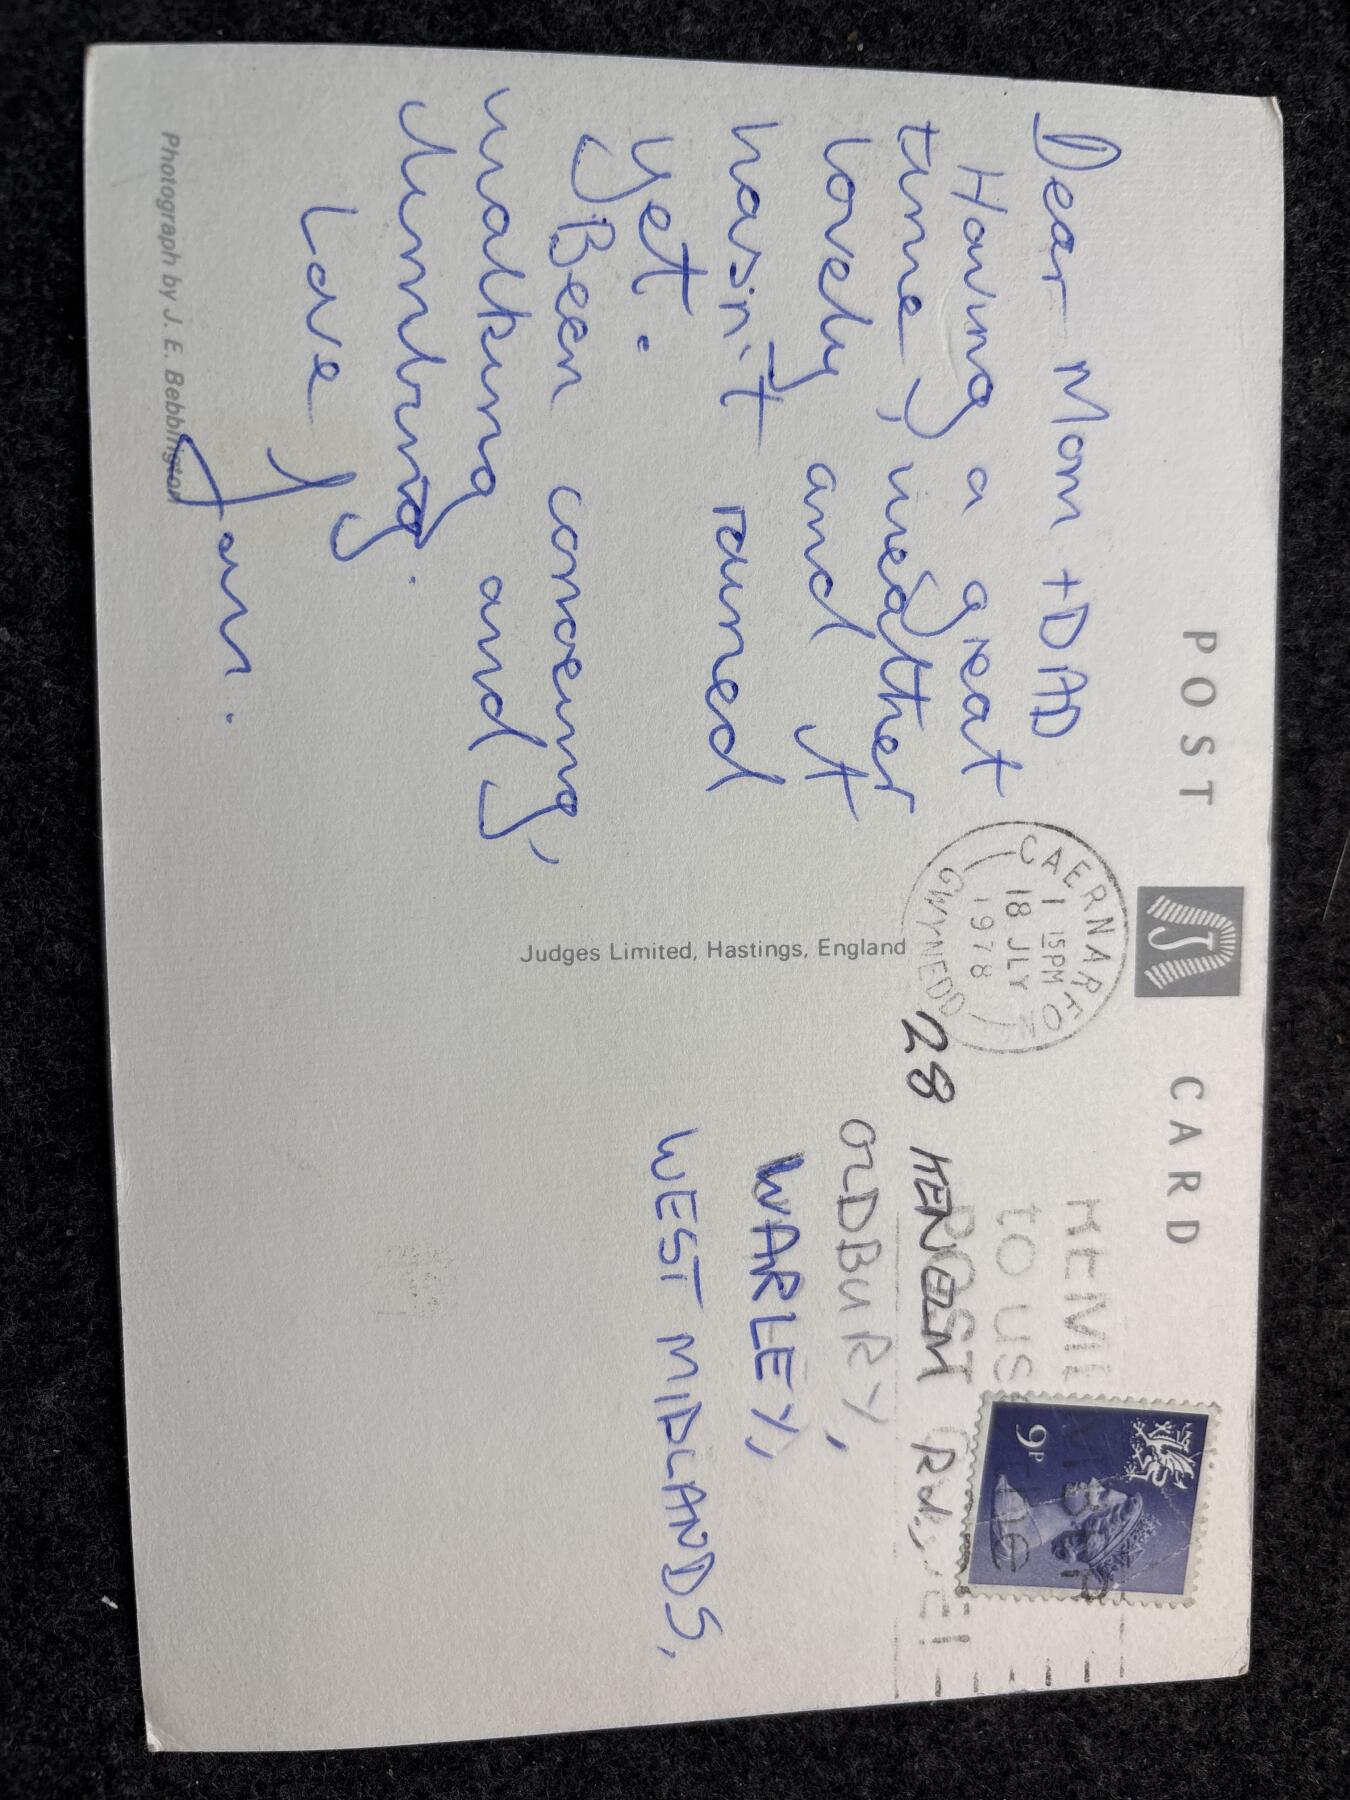 POST CARD
Dear Mom + DAD
Having a great
time, weather
lovely and it
hasn't rained
yet.
Been canoeing,
walking and
climbing.
Love
Photograph by J. E. Bebbington
Judges Limited, Hastings, England
CAERNARFON
1 15PM
18 JLY
1978
GWYNEDD
REMEMBER
to US the
POST
9P
28 KENELM Rd.,
OLDBURY,
WARLEY,
WEST MIDLANDS,